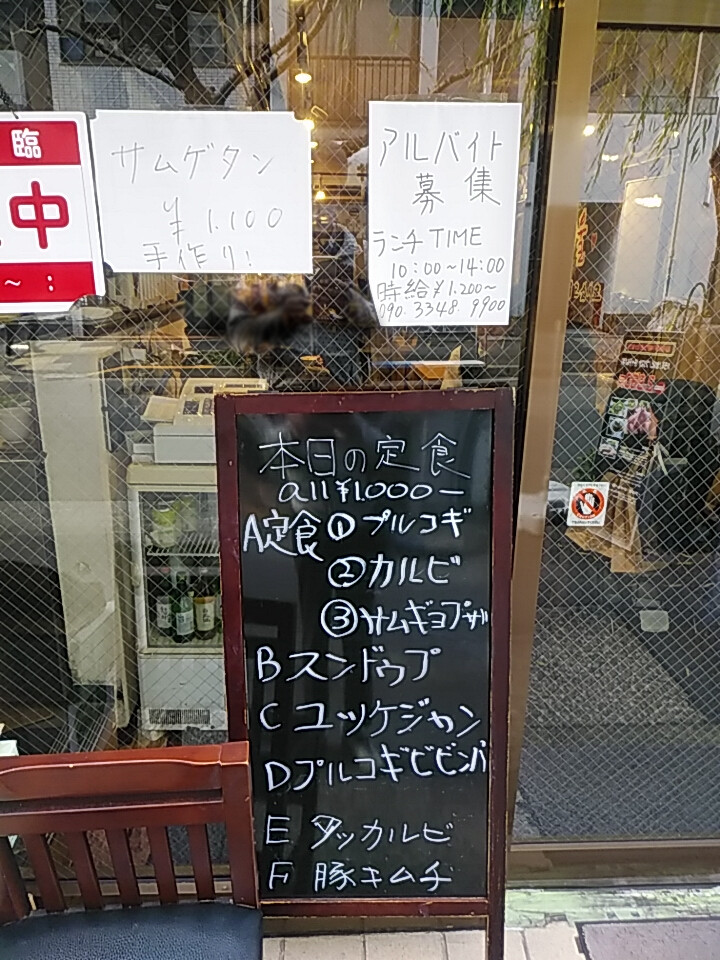 臨
中
～：
サムゲタン
¥1.100
手作り!
アルバイト
募集
ランチTIME
10:00～14:00
時給¥1.200～
090.3348.9900
本日の定食
all ¥1.000—
A定食①プルコギ
②カルビ
③サムギョプサル
Bスンドゥプ
Cユッケジャン
Dプルコギビビンバ
Eダッカルビ
F豚キムチ